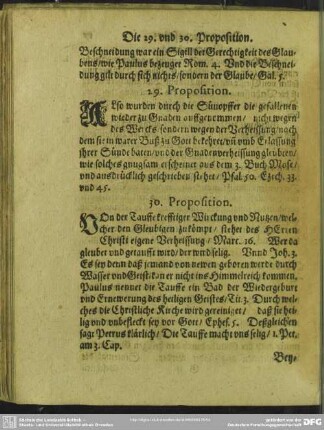 Die 29. vnd 30. Proposition.
Beschneidung war ein Sigill der Gerechtigkeit des Glau-
bens/wie Paulus bezeuget Rom. 4. Vnd die Beschnei-
dung gilt durch sich nichts/sondern der Glaube/Gal. 5.
29. Proposition.
Also wurden durch die Sünopffer die gefallenen
wieder zu Gnaden auffgenommen/ nicht wegen
des Wercks/sondern wegen der Verheissung/nach
dem sie in warer Buß zu Gott bekehret/vñ vmb Erlassung
jhrer Sünde baten/vnd der Gnadenverheissung gleubten/
wie solches gnugsam erscheinet aus dem 3. Buch Mose/
vnd ausdrücklich geschrieben stehet/Psal. 50. Ezech. 33.
vnd 45.
30. Proposition.
VOn der Tauffe krefftiger Wirckung vnd Nutzen/wel-
cher den Gleubigen zukömpt/ stehet des HErrn
Christi eigene Verheissung/ Marc. 16. Wer da
gleubet vnd getaufft wird/der wird selig. Vnnd Joh. 3.
Es sey denn daß jemand von newen geboren werde durch
Wasser vnd Geist/kan er nicht ins Himmelreich kommen.
Paulus nennet die Tauffe ein Bad der Wiedergeburt
vnd Ernewerung des heiligen Geistes/Tit. 3. Durch wel-
ches die Christliche Kirche wird gereiniget/ daß sie hei-
lig vnd vnbefleckt sey vor Gott/ Ephes. 5. Deßgleichen
sagt Petrus klärlich/ Die Tauffe macht vns selig/ 1. Pet.
am 3. Cap.
Bey-